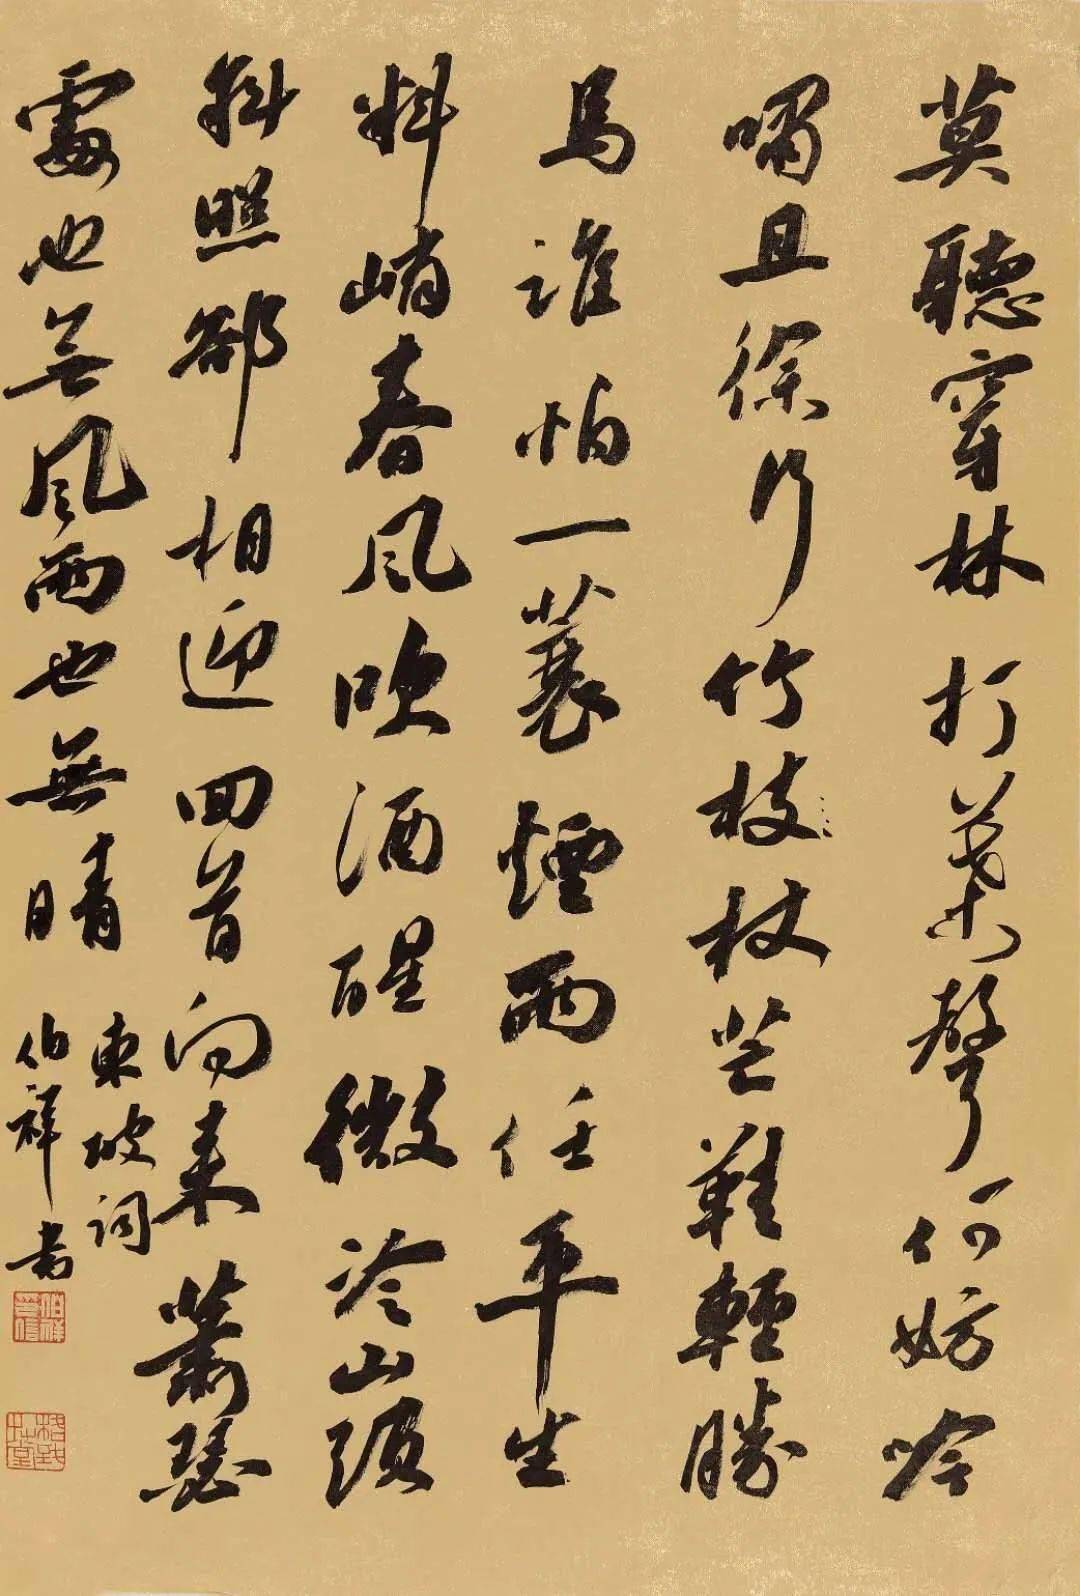 莫聽穿林打葉聲何妨吟
嘯且徐行竹枝杖芒鞋輕勝
馬誰怕一蓑煙雨任平生
料峭春風吹酒醒微冷山頭
斜照卻相迎回首向來蕭瑟
處也無風雨也無晴
東坡詞
伯祥書
伯祥印信